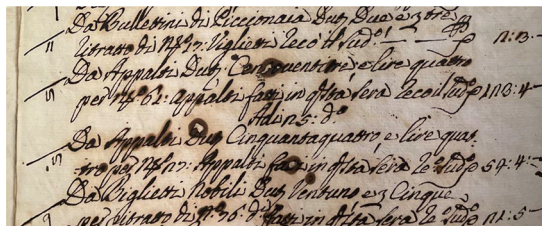 Da Bullettini di Piccionaia Dug. Due e 3 tre
ritratto di N.º 17: Viglietti recò il sud.º 2:3-
Da Appalti Dug. Centoventitre e lire quattro
per N.º 62: appalti fatti in q.sta sera recò il sud.º 123:4-
Adi n 5: d.º
Da Appalti Dug. Cinquantaquattro e lire quat:
:tro per N.º 27: Appalti fatti in q.sta sera re.º sud.º 54:4-
Da Biglietti Nobili Dug. Ventuno e 3 Cinque
per ritratto di n.º 36: d.º fatti in q.sta sera re.º sud.º 21:5-